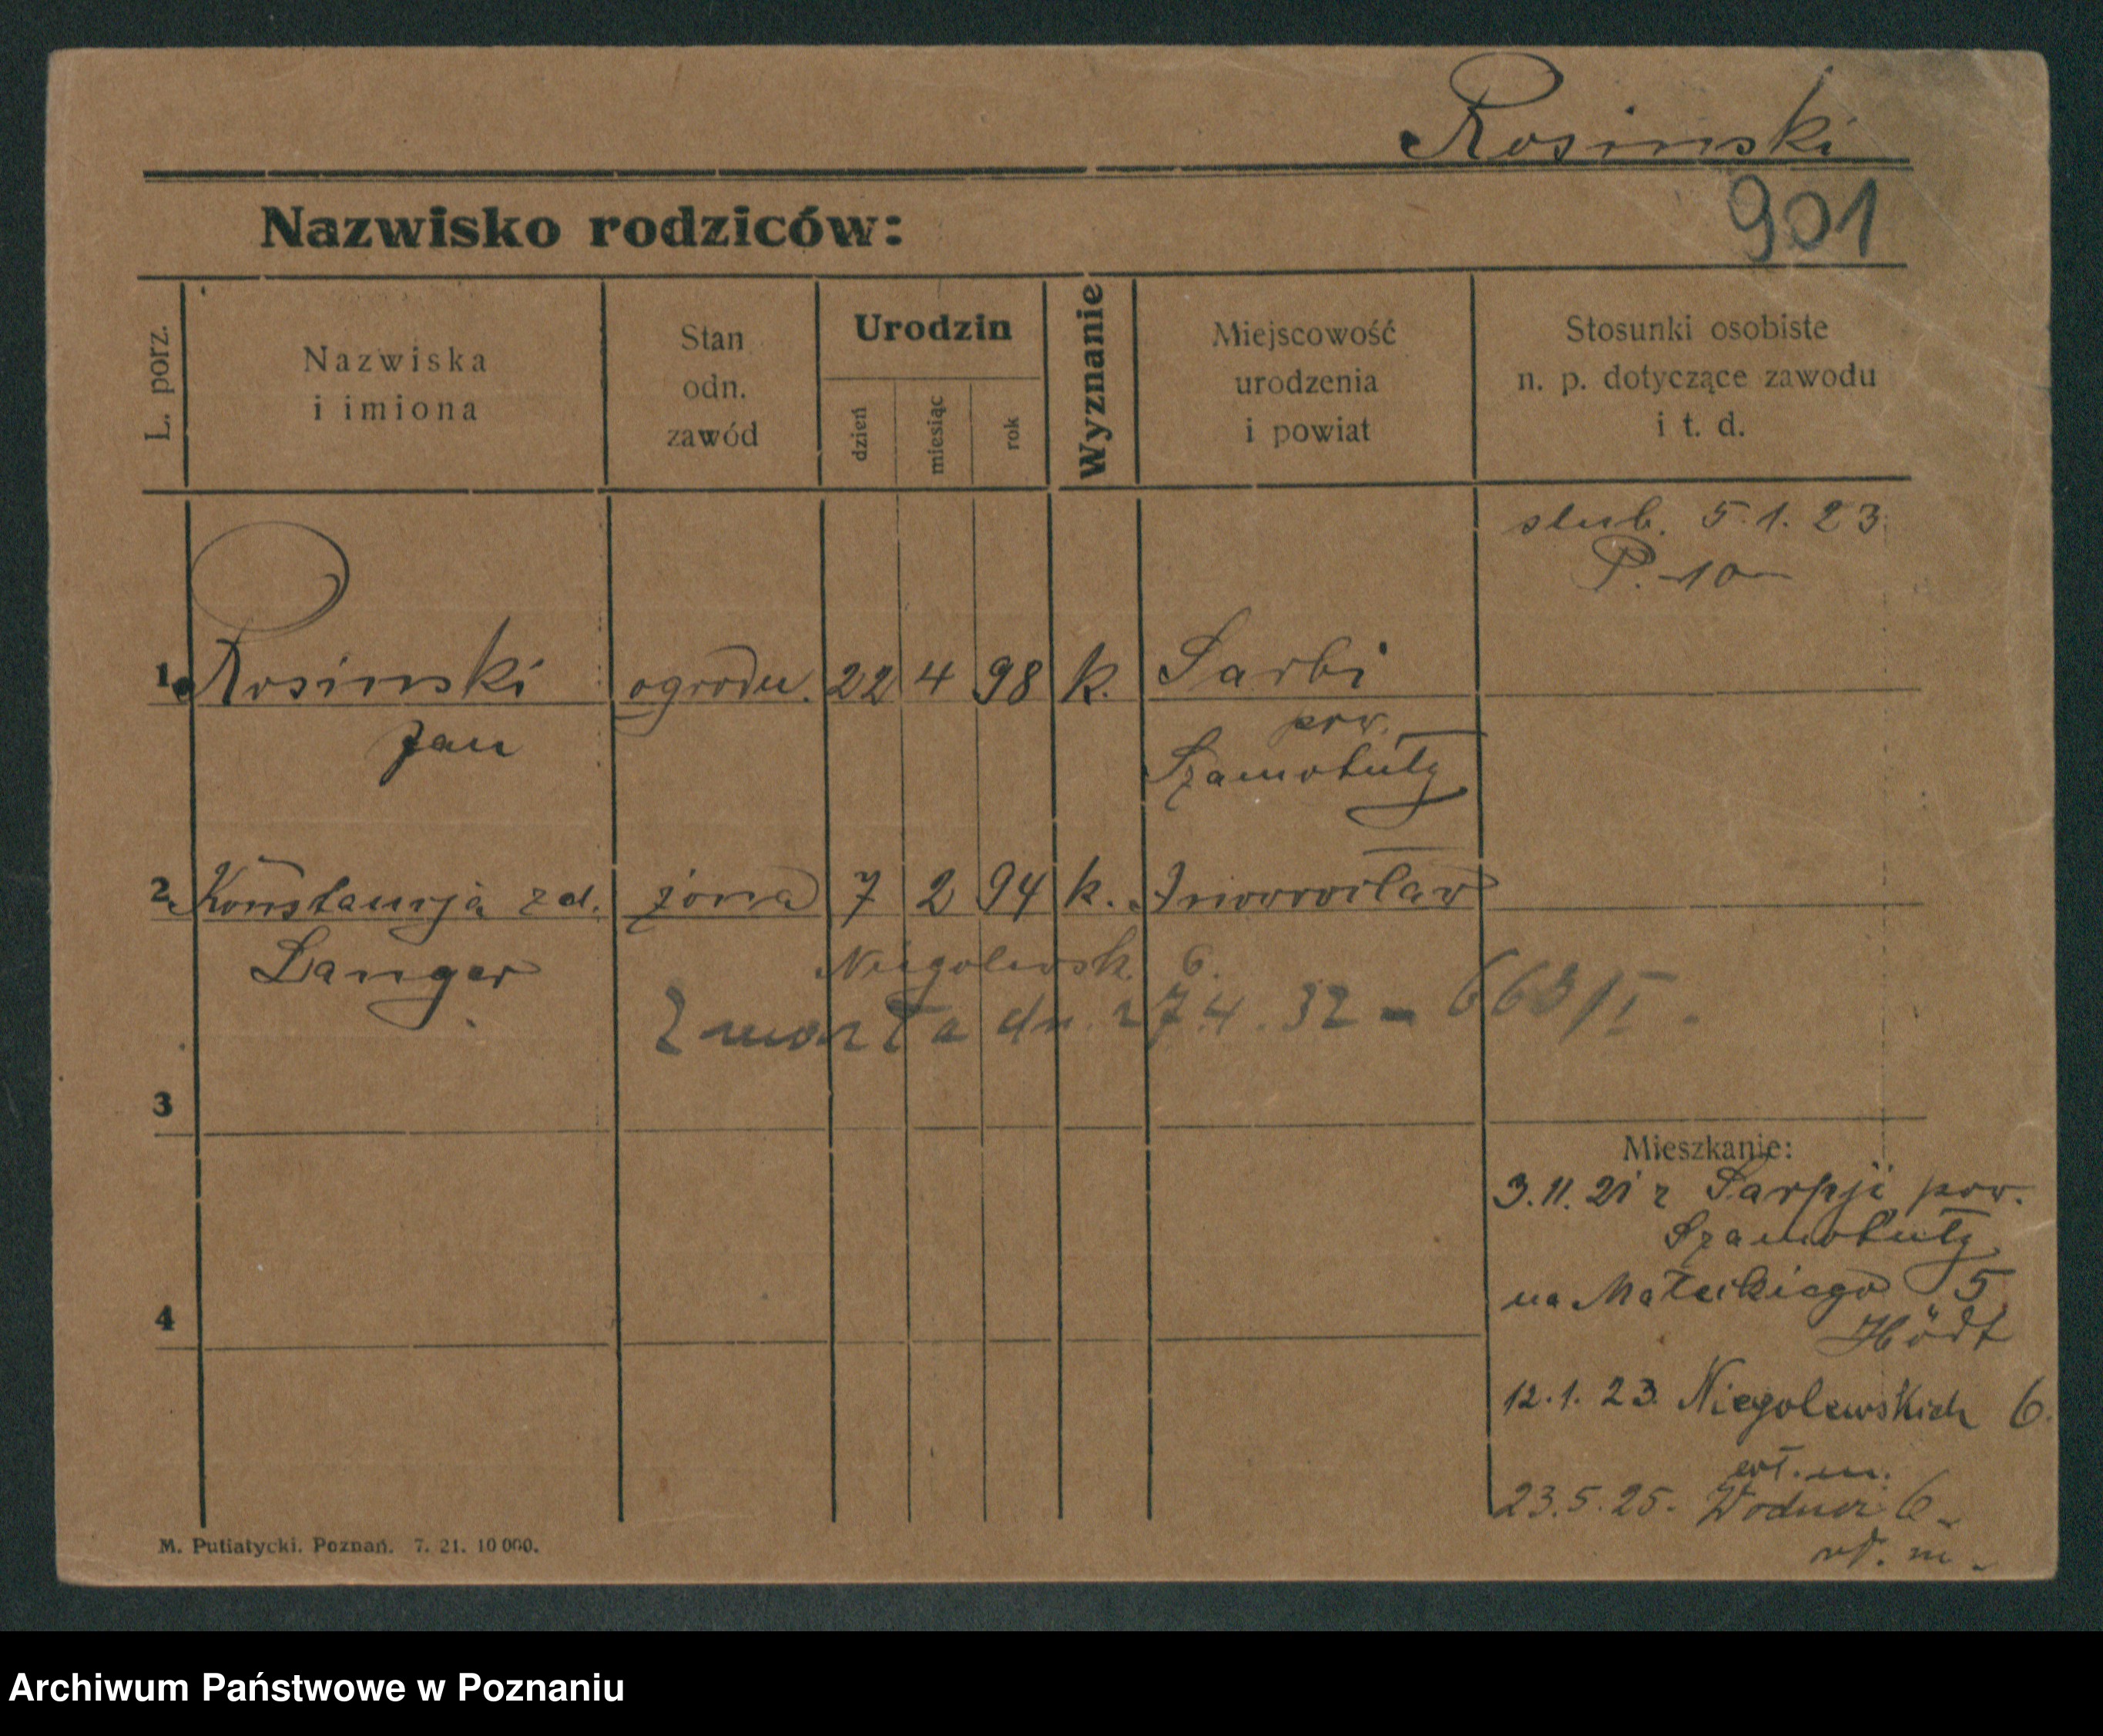 Rosinski
901
Nazwisko rodziców:
L. porz.
Nazwiska
i imiona
Stan
odn.
zawód
Urodzin
dzień
miesiąc
rok
Wyznanie
Miejscowość
urodzenia
i powiat
Stosunki osobiste
n. p. dotyczące zawodu
i t. d.
slub. 5.1.23.
P. 10
1. Rosinski ogrodn. 22 4 98 k. Sarbi
Jan
pow.
Szamotuły
2. Konstancja zd. żona 7 2 94 k. Inowrocław
Langer
Niegolewsk. 6.
Zmarła dn. 27.4.32 - 663/I.
3
Mieszkanie:
3.11.21 z Sarpji pow.
Szamotuły
na Małeckiego 5
Hödt
4
12.1.23. Niegolewskich 6.
wł. m.
23.5.25. Wodna 6
wł. m.
M. Putiatycki. Poznań. 7. 21. 10 000.
Archiwum Państwowe w Poznaniu